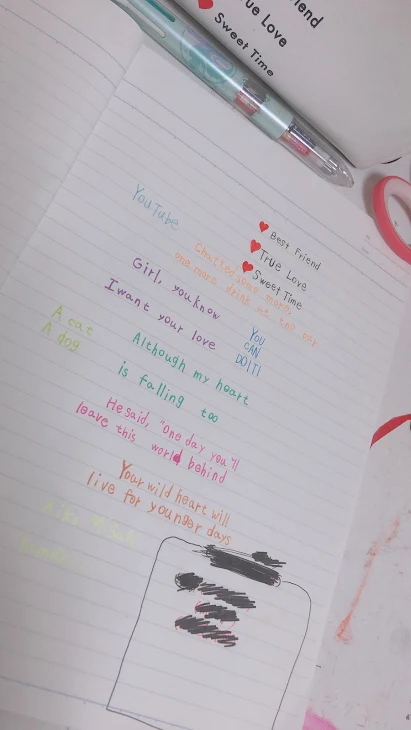 iend
ue Love
Sweet Time
YouTube
Best Friend
True Love
Sweet Time
Chatted some more,
one more drink at the bar
Girl, you know
I want your love
YOU
CAN
DO IT!
A cat
A dog
Although my heart
is falling too
He said, "one day you'll
leave this world behind
Your wild heart will
live for younger days